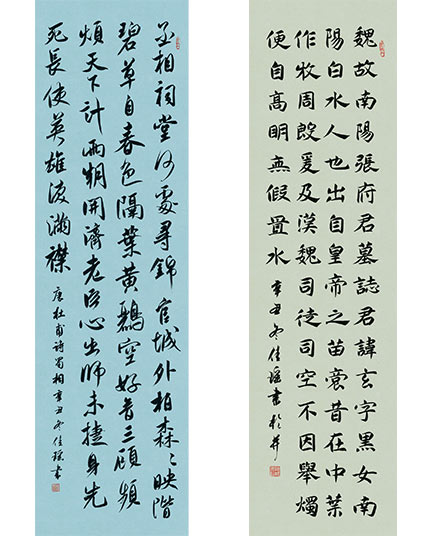 魏故南陽張府君墓誌君諱玄字黑女南
陽白水人也出自皇帝之苗裔昔在中葉
作牧周殷爰及漢魏司徒司空不因舉燭
便自高明無假置水 辛丑冬佳瑶書於并
丞相祠堂何處尋錦官城外柏森〻映階
碧草自春色隔葉黃鸝空好音三顧頻
煩天下計兩朝開濟老臣心出師未捷身先
死長使英雄淚滿襟 唐杜甫詩蜀相辛丑冬佳瑶書